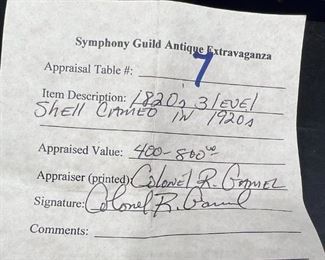 Symphony Guild Antique Extravaganza
Appraisal Table #: 7
Item Description: 1820s 3 level
Shell Cameo in 1920s
Appraised Value: 400-800.00
Appraiser (printed) Colonel R. Gamel
Signature: Colonel R. Gamel
Comments: